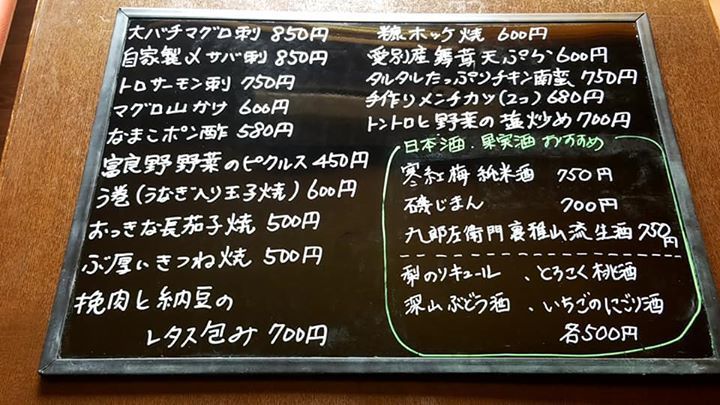 大バチマグロ刺 850円
自家製〆サバ刺 850円
トロサーモン刺 750円
マグロ山かけ 600円
なまこポン酢 580円
富良野野菜のピクルス 450円
う巻(うなぎ入り玉子焼) 600円
おっきな長茄子焼 500円
ぶ厚いきつね焼 500円
挽肉と納豆の
レタス包み 700円
糠ホッケ焼 600円
愛別産舞茸天ぷら 600円
タルタルたっぷりチキン南蛮 750円
手作りメンチカツ(2コ) 680円
トントロと野菜の塩炒め 700円
日本酒・果実酒おすすめ
寒紅梅 純米酒 750円
磯じまん 700円
九郎左衛門 裏雅山流生酒 750円
梨のリキュール 、とろこく桃酒
深山ぶどう酒 、いちごのにごり酒
各500円